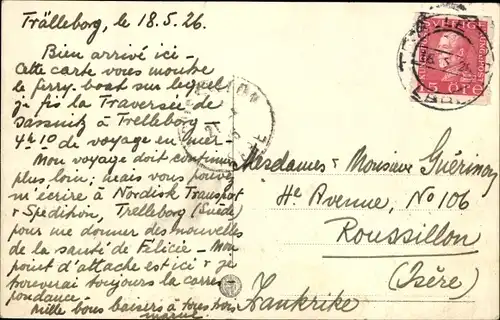 Trälleborg, le 18.5.26.
Bien arrivé ici -
Cette carte vous montre
le ferry-boat sur lequel
j'ai fis la Traversée de
Sassnitz à Trelleborg -
4h10 de voyage en mer -
Mon voyage doit continuer
plus loin; mais vous pouvez
m'écrire à Nordisk Transport
& Spedition, Trelleborg (Suède)
pour me donner des nouvelles
de la santé de Félicie - Mon
point d'attache est ici & je
trouverai toujours la corres
pondance.
Mille bons baisers à tous trois
SVERIGE
5 ÖRE
Mesdames & Monsieur Guérimon
He Avenue, No 106
Roussillon
(Isère)
Frankrike